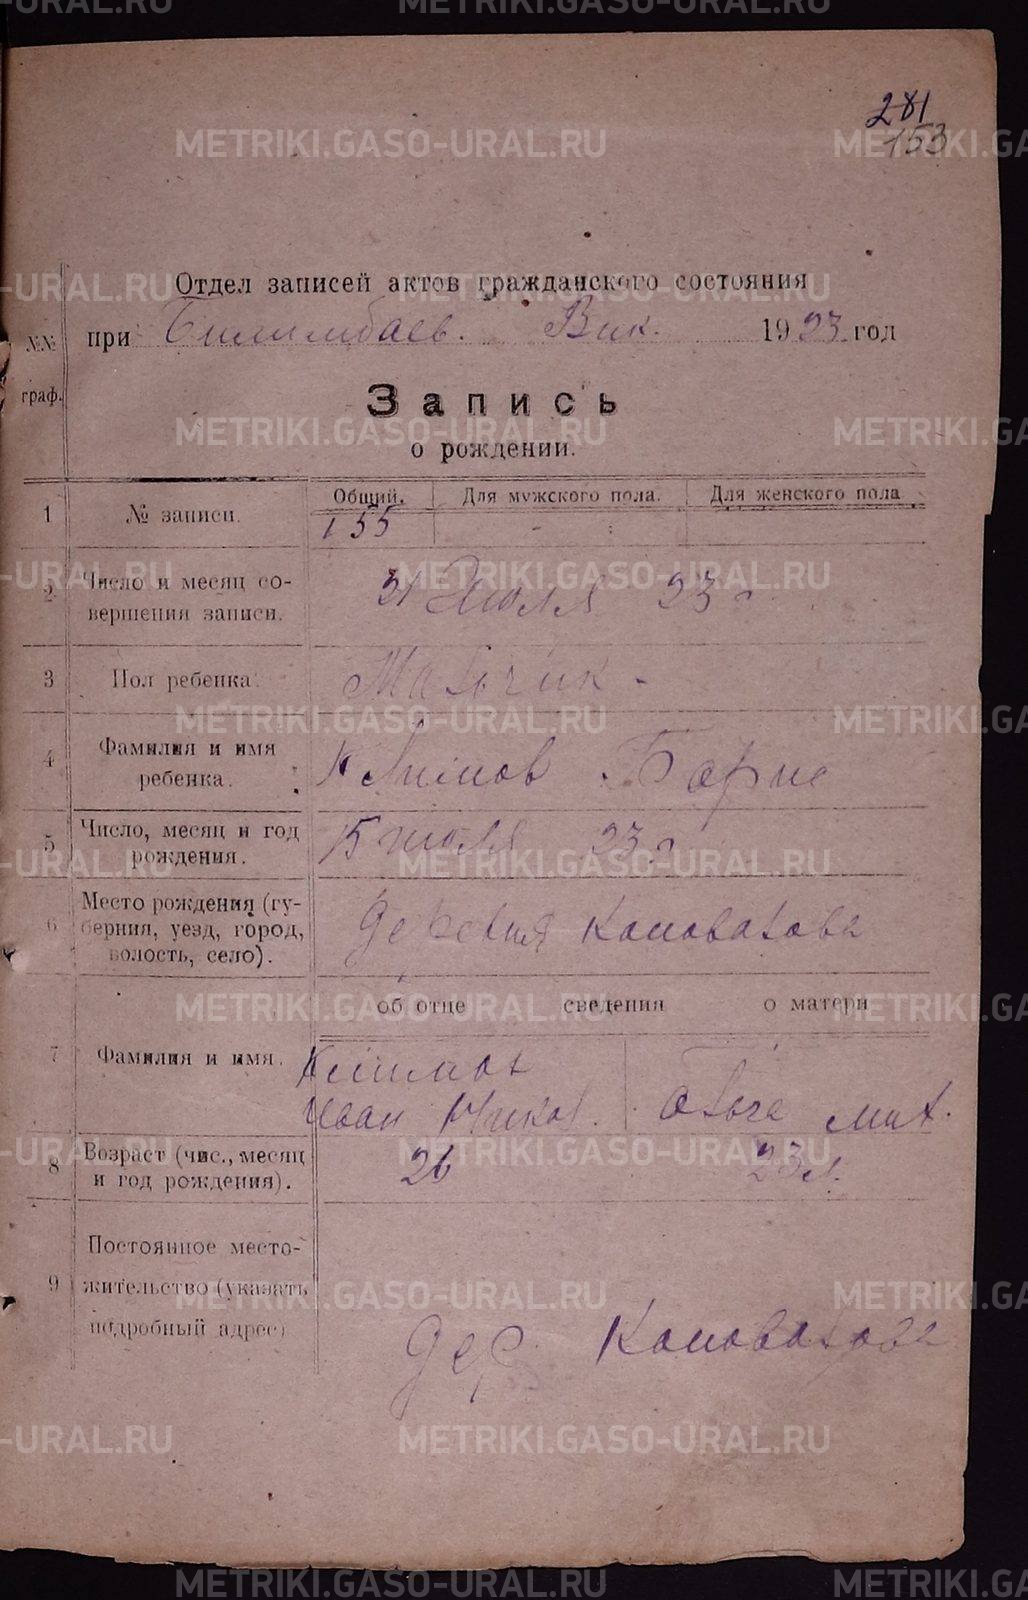 281
153
Отдел записей актов гражданского состояния
при Билимбаев. Вик. 1923 год
№№ граф.
Запись
о рождении.
Общий. Для мужского пола. Для женского пола
1 № записи. 155
2 Число и месяц со-
вершения записи. 31 Июля 23 г
3 Пол ребенка. Мальчик -
4 Фамилия и имя
ребенка. Климов Борис
5 Число, месяц и год
рождения. 15 июля 23 г
6 Место рождения (гу-
берния, уезд, город,
волость, село). Деревня Коновалова
об отце сведения о матери
7 Фамилия и имя. Климов
Иван Никол. Ольга Мих.
8 Возраст (чис., месяц
и год рождения). 26 23 л.
9 Постоянное место-
жительство (указать
подробный адрес)
Дер. Коновалова
METRIKI.GASO-URAL.RU